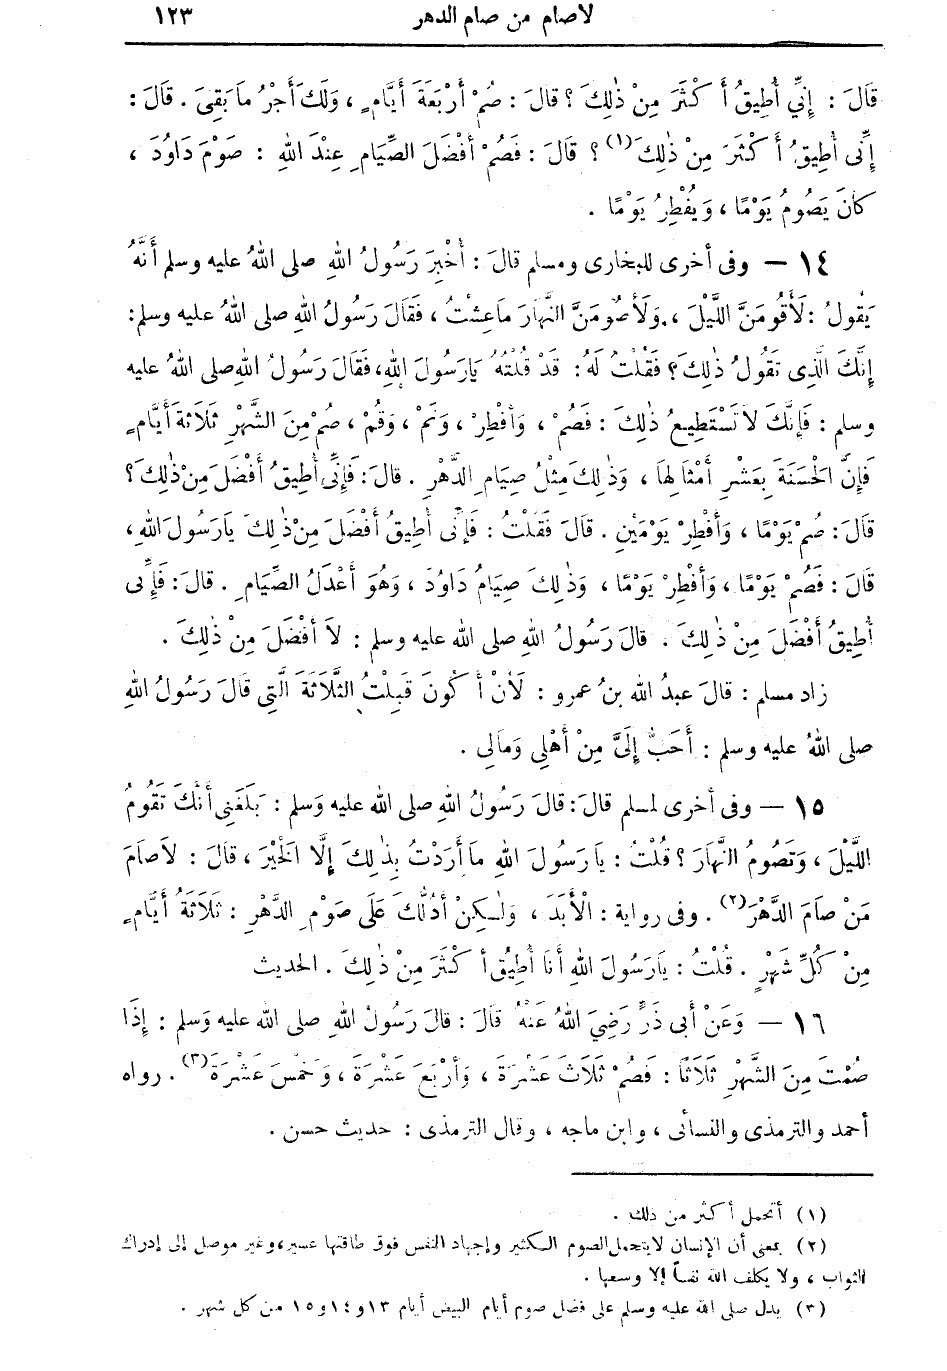 لاصام من صام الدهر ١٢٣
قَالَ : إِنِّي أُطِيقُ أَكْثَرَ مِنْ ذٰلِكَ ؟ قالَ : صُمْ أَرْبَعَةَ أَيَّامٍ ، وَلَكَ أَجْرُ مَا بَقِىَ . قَالَ :
إِنِّى أُطِيقُ أَكْثَرَ مِنْ ذٰلِكَ (١) ؟ قَالَ : فَصُمْ أَفْضَلَ الصِّيَامِ عِنْدَ اللهِ : صَوْمَ دَاوُدَ ،
كانَ يَصُومُ يَوْمًا ، وَيُفْطِرُ يَوْمًا .
١٤ — وفى أخرى للبخارى ومسلم قالَ : أُخْبِرَ رَسُولُ اللهِ صلى اللهُ عليه وسلم أَنَّهُ
يَقُولُ : لَأَقُومَنَّ اللَّيْلَ ، وَلَأَصُومَنَّ النَّهَارَ مَاعِشْتُ ، فَقَالَ رَسُولُ اللهِ صلى اللهُ عليه وسلم :
إِنَّكَ الَّذِى تَقُولُ ذٰلِكَ ؟ فَقُلْتُ لَهُ : قَدْ قُلْتُهُ يَارَسُولَ اللهِ، فَقَالَ رَسُولُ اللهِ صلى اللهُ عليه
وسلم : فَإِنَّكَ لاَتَسْتَطِيعُ ذٰلِكَ : فَصُمْ ، وَأَفْطِرْ ، وَنَمْ ، وَقُمْ ، صُمْ مِنَ الشَّهْرِ ثَلاَثَةَ أَيَّامٍ
فَإِنَّ الْحَسَنَةَ بِعَشْرِ أَمْثَالِهَا ، وَذٰلِكَ مِثْلُ صِيَامِ الدَّهْرِ . قالَ : فَإِنِّى أُطِيقُ أَفْضَلَ مِنْ ذٰلِكَ ؟
قَالَ : صُمْ يَوْمًا ، وَأَفْطِرْ يَوْمَيْنِ . قَالَ فَقُلْتُ : فَإِنِّى أُطِيقُ أَفْضَلَ مِنْ ذٰلِكَ يَارَسُولَ اللهِ ،
قَالَ : فَصُمْ يَوْمًا ، وَأَفْطِرْ يَوْمًا ، وَذٰلِكَ صِيَامُ دَاوُدَ ، وَهُوَ أَعْدَلُ الصِّيَامِ . قالَ : فَإِنِّى
أُطِيقُ أَفْضَلَ مِنْ ذٰلِكَ . قالَ رَسُولُ اللهِ صلى الله عليه وسلم : لاَ أَفْضَلَ مِنْ ذٰلِكَ .
زاد مسلم : قالَ عبدُ الله بنُ عمرو : لَأَنْ أَكُونَ قَبِلْتُ الثَّلاَثَةَ الَّتِى قَالَ رَسُولُ اللهِ
صلى اللهُ عليه وسلم : أَحَبُّ إِلَىَّ مِنْ أَهْلِى وَمَالِى .
١٥ — وفى أخرى لمسلم قالَ : قالَ رَسُولُ اللهِ صلى الله عليه وَسلم : بَلَغَنِى أَنَّكَ تَقُومُ
اللَّيْلَ ، وَتَصُومُ النَّهَارَ ؟ قُلْتُ : يَارَسُولَ اللهِ مَا أَرَدْتُ بِذٰلِكَ إِلَّا الْخَيْرَ ، قالَ : لاَصَامَ
مَنْ صَامَ الدَّهْرَ (٢) . وفى رواية : الْأَبَدَ ، وَلٰكِنْ أَدُلُّكَ عَلَى صَوْمِ الدَّهْرِ : ثَلاَثَةُ أَيَّامٍ
مِنْ كُلِّ شَهْرٍ . قُلْتُ : يَارَسُولَ اللهِ أَنَا أُطِيقُ أَكْثَرَ مِنْ ذٰلِكَ . الحديث
١٦ — وَعَنْ أَبِى ذَرٍّ رَضِيَ اللهُ عَنْهُ قَالَ : قالَ رَسُولُ اللهِ صلى الله عليه وَسلم : إِذَا
صُمْتَ مِنَ الشَّهْرِ ثَلاَثًا : فَصُمْ ثَلاَثَ عَشْرَةَ ، وَأَرْبَعَ عَشْرَةَ ، وَخَمْسَ عَشْرَةَ (٣) . رواه
أحمد والترمذى والنسائى ، وابن ماجه ، وقال الترمذى : حديث حسن .
(١) أتحمل أكثر من ذلك .
(٢) بمعنى أن الإنسان لايتحمل الصوم الكثير وإجهاد النفس فوق طاقتها عسير، وغير موصل إلى إدراك
الثواب ، ولا يكلف الله نفساً إلا وسعها .
(٣) يدل صلى الله عليه وسلم على فضل صوم أيام البيض أيام ١٣ و ١٤ و ١٥ من كل شهر .